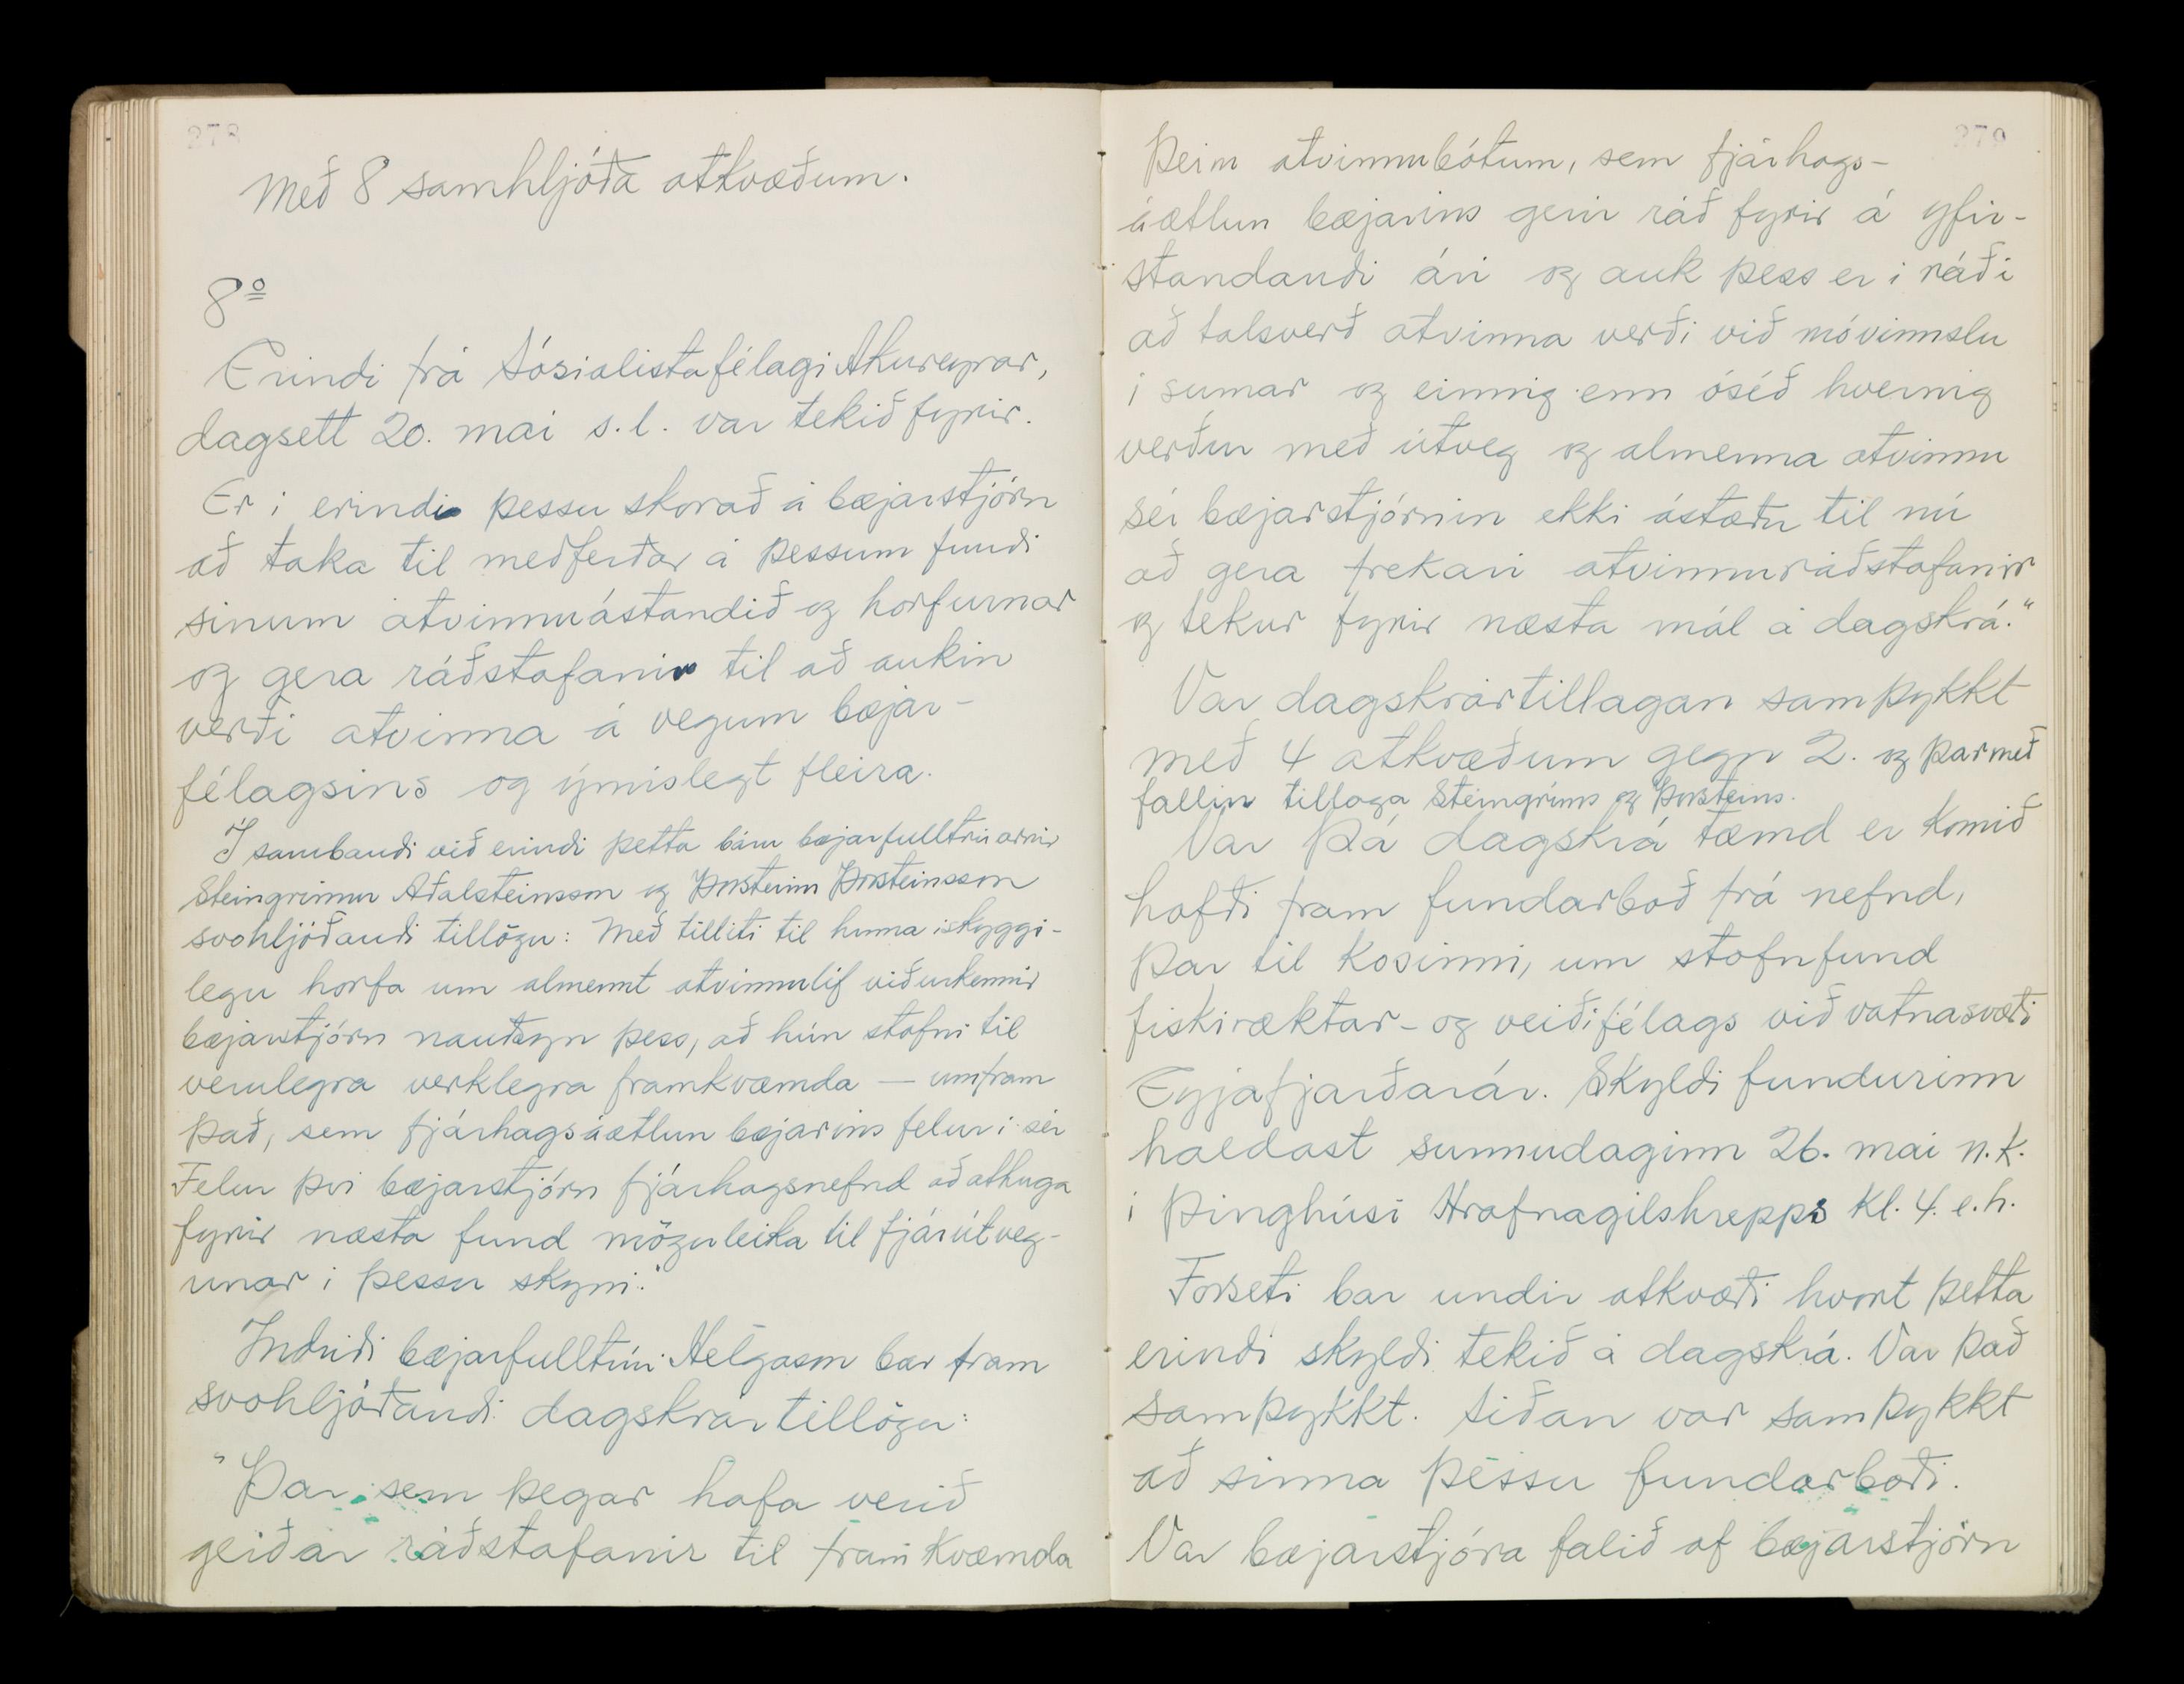 278
með 8 samhljóða atkvæðum.
8º
Erindi frá Sósialistafélagi Akureyrar,
dagsett 20. mai s.l. var tekið fyrir.
Er i erindi þessu skorað á bæjarstjórn
að taka til meðferðar á þessum fundi
sinum atvinnuástandið og horfurnar
og gera ráðstafanir til að aukin
verði atvinna á vegum bæjar-
félagsins og ýmislegt fleira.
Í sambandi við erindi þetta báru bæjarfulltrúarnir
Steingrimur Aðalsteinsson og Þorsteinn Þorsteinsson
svohljóðandi tillögu: Með tilliti til hinna iskyggi-
legu horfa um almennt atvinnulif viðurkennir
bæjarstjórn nauðsyn þess, að hún stofni til
verulegra verklegra framkvæmda — umfram
það, sem fjárhagsáætlun bæjarins felur i sér
Felur þvi bæjarstjórn fjárhagsnefnd að athuga
fyrir næsta fund möguleika til fjárútveg-
unar i þessu skyni."
Indriði bæjarfulltrúi Helgason bar fram
svohljóðandi dagskrártillögu:
"Þar sem þegar hafa verið
gerðar ráðstafanir til framkvæmda
279
þeim atvinnubótum, sem fjárhags-
áætlun bæjarins gerir ráð fyrir á yfir-
standandi ári og auk þess er i ráði
að talsverð atvinna verði við móvinnslu
i sumar og einnig enn óséð hvernig
verður með útveg og almenna atvinnu
sér bæjarstjórnin ekki ástæðu til nú
að gera frekari atvinnuráðstafanir
og tekur fyrir næsta mál á dagskrá."
Var dagskrártillagan samþykkt
með 4 atkvæðum gegn 2. og þarmeð
fallin tillaga Steingrims og Þorsteins.
Var þá dagskrá tæmd er komið
hafði fram fundarboð frá nefnd,
þar til kosinni, um stofnfund
fiskiræktar- og veiðifélags við vatnasvæði
Eyjafjarðarár. Skyldi fundurinn
haldast sunnudaginn 26. mai n.k.
i þinghúsi Hrafnagilshrepps kl. 4. e.h.
Forseti bar undir atkvæði hvort þetta
erindi skyldi tekið á dagskrá. Var það
samþykkt. Siðan var samþykkt
að sinna þessu fundarboði.
Var bæjarstjóra falið af bæjarstjórn